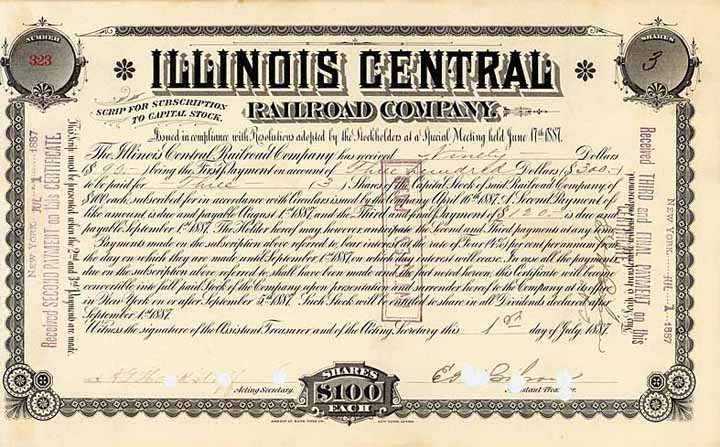 NUMBER
323
SHARES
3
ILLINOIS CENTRAL
SCRIP FOR SUBSCRIPTION
TO CAPITAL STOCK.
RAILROAD COMPANY.
Issued in compliance with Resolutions adopted by the Stockholders at a Special Meeting held June 17th 1887.
The Illinois Central Railroad Company has received Ninety Dollars
($ 90.- ) being the First payment on account of Three hundred Dollars ($ 300.- )
to be paid for Three (3) Shares of the Capital Stock of said Railroad Company of
$100 each, subscribed for in accordance with Circulars issued by the Company April 16th 1887. A Second Payment of
like amount is due and payable August 1st 1887, and the Third and final Payment of $120.- is due and
payable September 1st 1887. The Holder hereof may however anticipate the Second and Third payments at any time.
Payments made on the subscription above referred to, bear interest at the rate of Four (4%) per cent per annum from
the day on which they are made until September 1st 1887 on which day interest will cease. In case all the payments
due on the subscription above referred to shall have been made and shall be noted hereon, this Certificate will become
convertible into full paid Stock of the Company upon presentation and surrender hereof to the Company at its office
in New York on or after September 5th 1887. Such Stock will be entitled to share in all Dividends declared after
September 1st 1887.
Witness the signature of the Assistant Treasurer and of the Acting Secretary this 1st day of July 1887.
Acting Secretary.
Assistant Treasurer.
SHARES
$100
EACH
AMERICAN BANK NOTE CO. NEW YORK.
This Scrip must be presented when the 2nd and 3rd Payments are made.
Received SECOND PAYMENT on this CERTIFICATE
NEW YORK JUL 1 1887
This Scrip is transferable without endorsement.
Received THIRD and FINAL PAYMENT on this
NEW YORK JUL 1 1887